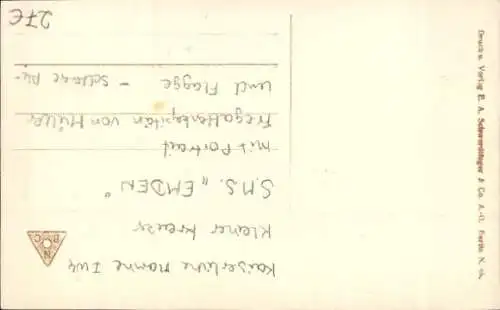 Kaiserliche Marine I WK
Kleiner Kreuzer
S.M.S. „EMDEN"
mit Portrait
Fregattenkapitän von Müller
und Flagge –
27€
Druck u. Verlag E. A. Schwerdtfeger & Co. A.-G. Berlin N.
N B C